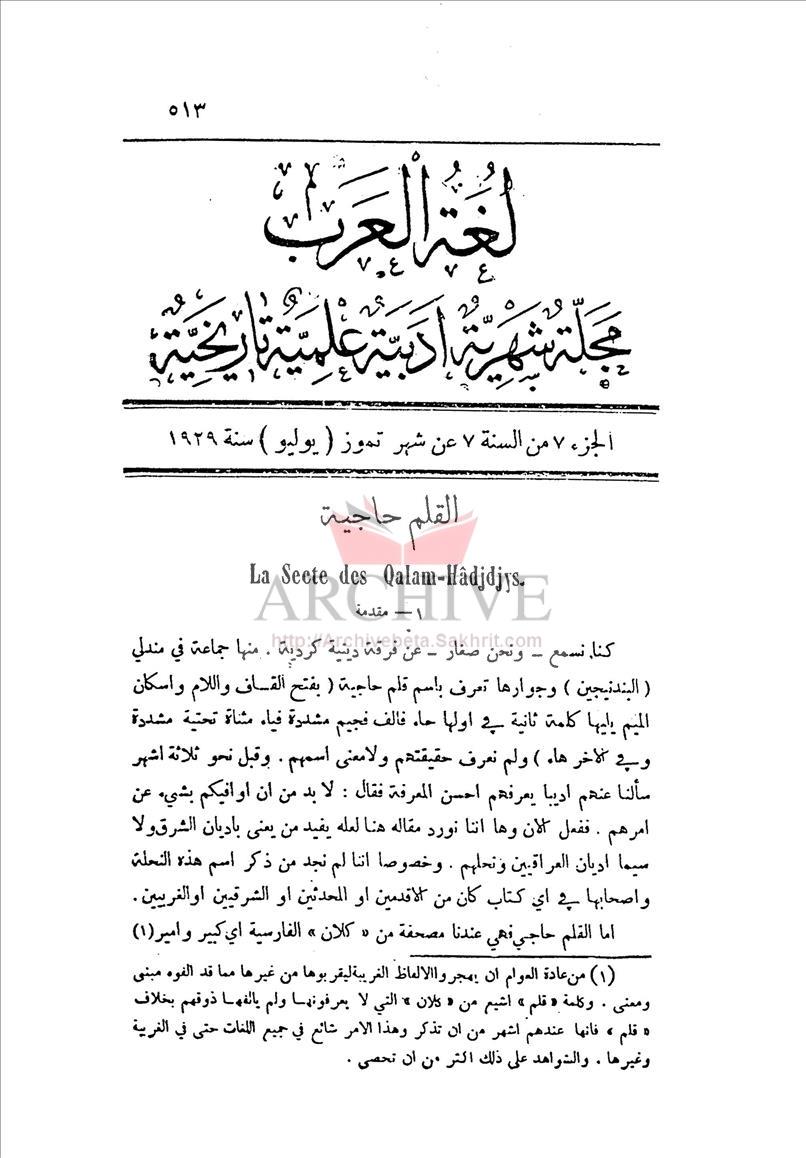 ٥١٣
لُغَةُ الْعَرَبِ
مَجَلَّةٌ شَهْرِيَّةٌ أَدَبِيَّةٌ عِلْمِيَّةٌ تَارِيخِيَّةٌ
الجزء ٧ من السنة ٧ عن شهر تموز ( يوليو ) سنة ١٩٢٩
القلم حاجية
La Secte des Qalam-Hâdjdjys.
ARCHIVE
١ — مقدمة
http://Archivebeta.Sakhrit.com
كنا نسمع – ونحن صغار – عن فرقة دينية كردية . منها جماعة في مندلي
( البندنيجين ) وجوارها تعرف باسم قلم حاجية ( بفتح القاف واللام واسكان
الميم يليها كلمة ثانية في اولها حاء فالف فجيم مشددة فياء مثناة تحتية مشددة
وفي الاخر هاء ) ولم نعرف حقيقتهم ولا معنى اسمهم . وقبل نحو ثلاثة اشهر
سألنا عنهم اديبا يعرفهم احسن المعرفة فقال : لا بد من ان اوافيكم بشيء عن
امرهم . ففعل الان وها اننا نورد مقاله هنا لعله يفيد من يعنى باديان الشرق ولا
سيما اديان العراقيين ونحلهم . وخصوصا اننا لم نجد من ذكر اسم هذه النحلة
واصحابها في اي كتاب كان من الاقدمين او المحدثين او الشرقيين او الغربيين .
اما القلم حاجي فهي عندنا مصحفة من « كلان » الفارسية اي كبير وامير (١)
(١) من عادة العوام ان يهجروا الالفاظ الغريبة ليقربوها من غيرها مما قد الفوه مبنى
ومعنى . وكلمة « قلم » اشيع من « كلان » التي لا يعرفونها ولم يالفها ذوقهم بخلاف
« قلم » فانها عندهم اشهر من ان تذكر وهذا الامر شائع في جميع اللغات حتى في الغربية
وغيرها . والشواهد على ذلك اكثر من ان تحصى .